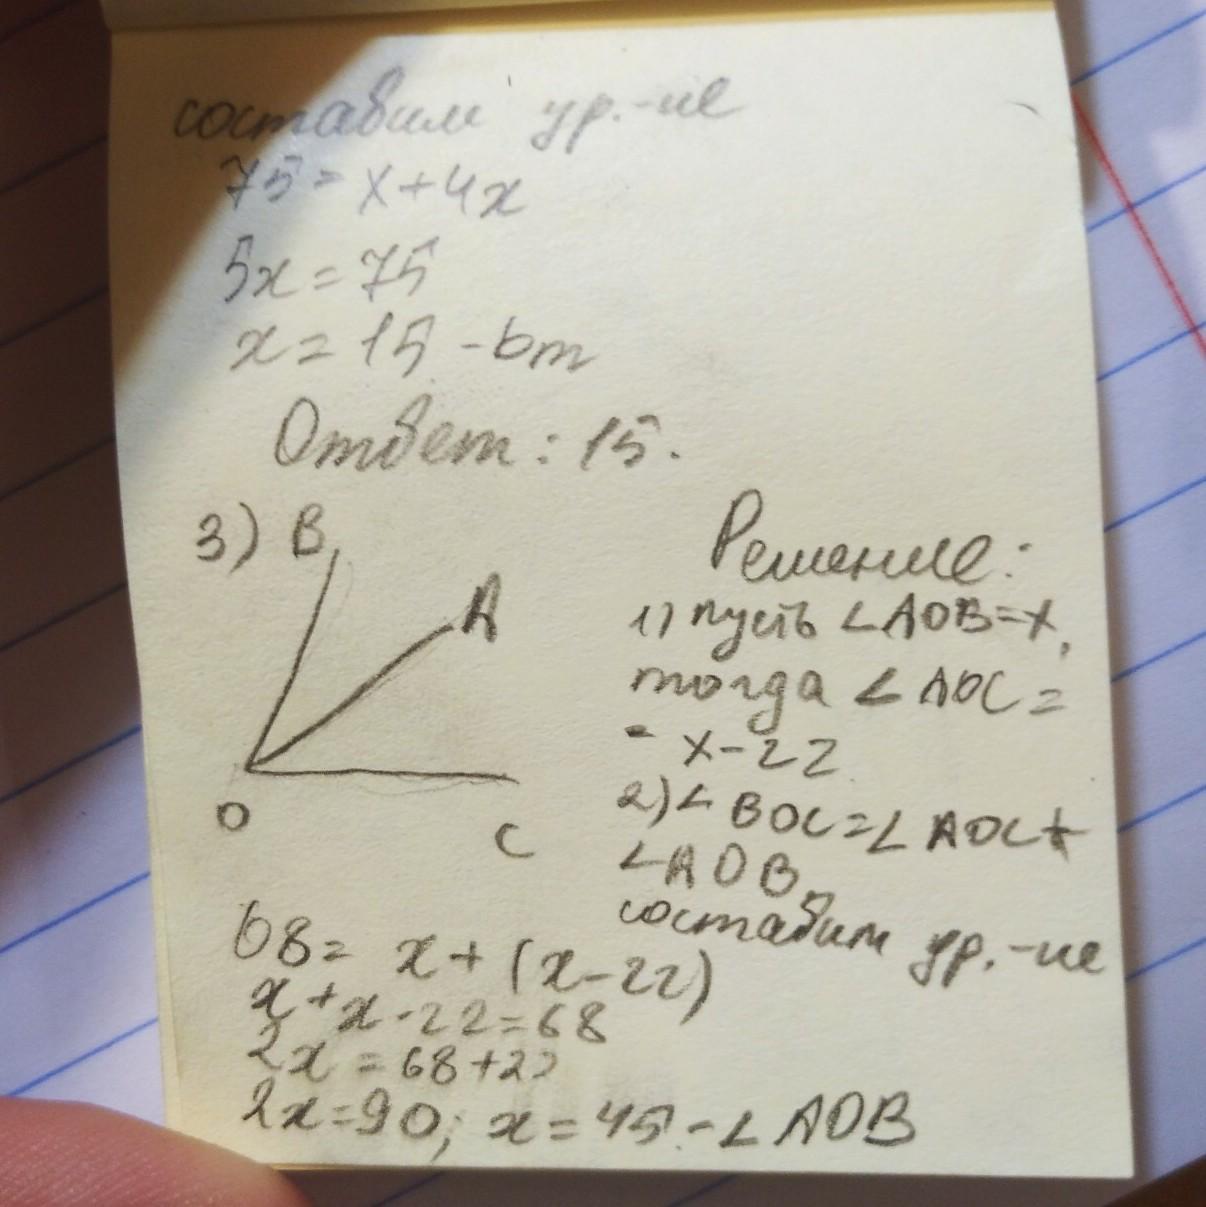 составим ур.-ие
75 = x + 4x
5x = 75
x = 15 - bm
Ответ: 15.
3) B
A
O
C
Решение:
1) пусть ∠AOB = x,
тогда ∠AOC =
= x - 22
2) ∠BOC = ∠AOC +
∠AOB,
составим ур.-ие
68 = x + (x - 22)
x + x - 22 = 68
2x = 68 + 22
2x = 90; x = 45 - ∠AOB